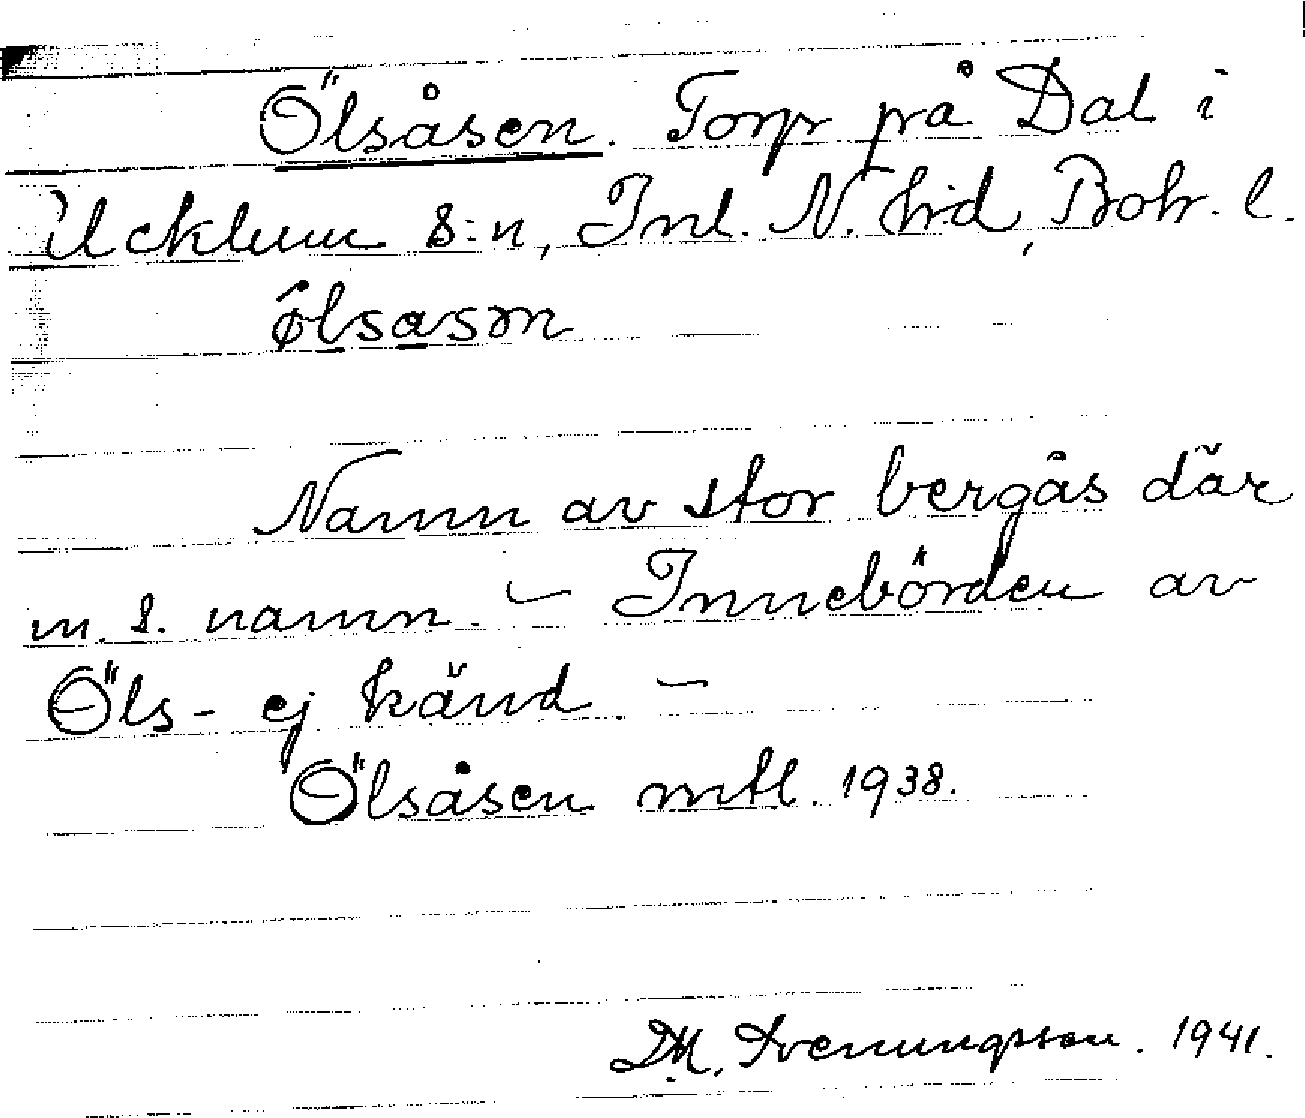 Ölsåsen. Torp på Dal i
Ucklum s:n, Inl. N. hd, Boh. l.
ølsåsøn
Namn av stor bergås där
m. s. namn. - Innebörden av
Öls- ej känd. -
Ölsåsen mtl. 1938.
M. Svenungsson. 1941.